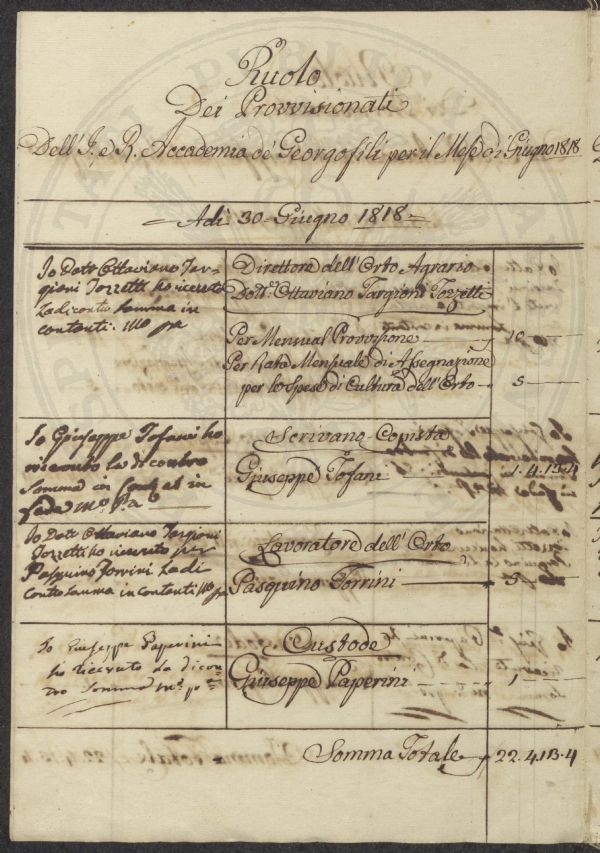 Ruolo
Dei Provvisionati
Dell' I. e R. Accademia de' Georgofili per il Mese di Giugno 1818
Adì 30 Giugno 1818
Io Dott Ottaviano Tar-
gioni Tozzetti ho ricevuto
La di contro Somma in
contanti. Mo pa
Direttore dell' Orto Agrario
Dott.e Ottaviano Targioni Tozzetti
Per Mensual Provvisione 10
Per Rata Mensuale di Assegnazione
per le Spese di Cultura dell' Orto 5
Io Giuseppe Tofani ho
ricevuto la di contro
Somma in in
fede Mo Pa
Scrivano Copista
Giuseppe Tofani 1.4.13.4
Io Dott Ottaviano Targioni
Tozzetti ho ricevuto per
Pasquino Torrini La di
Contro Somma in contanti Mo pa
Lavoratore dell' Orto
Pasquino Torrini 5
Io Giuseppe Paperini
ho ricevuto la dicon-
tro Somma Mo pa
Custode
Giuseppe Paperini 1
Somma Totale 22.4.13.4